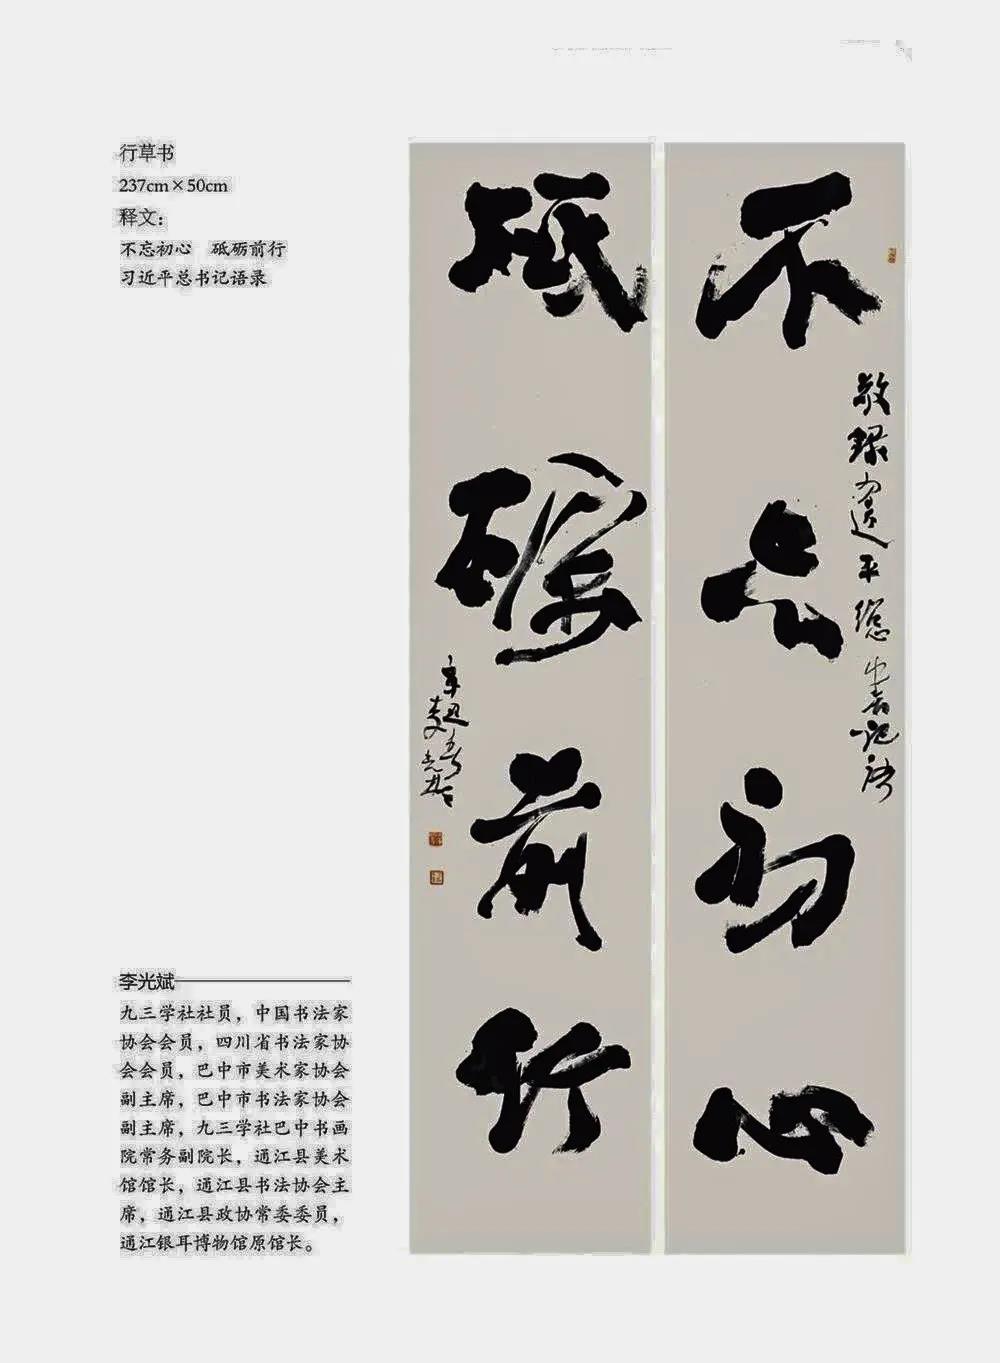 行草书
237cm×50cm
释文：
不忘初心　砥砺前行
习近平总书记语录
不忘初心
敬录习近平总书记语
砥砺前行
辛丑春
李光斌
李光斌
九三学社社员，中国书法家
协会会员，四川省书法家协
会会员，巴中市美术家协会
副主席，巴中市书法家协会
副主席，九三学社巴中书画
院常务副院长，通江县美术
馆馆长，通江县书法协会主
席，通江县政协常委委员，
通江银耳博物馆原馆长。